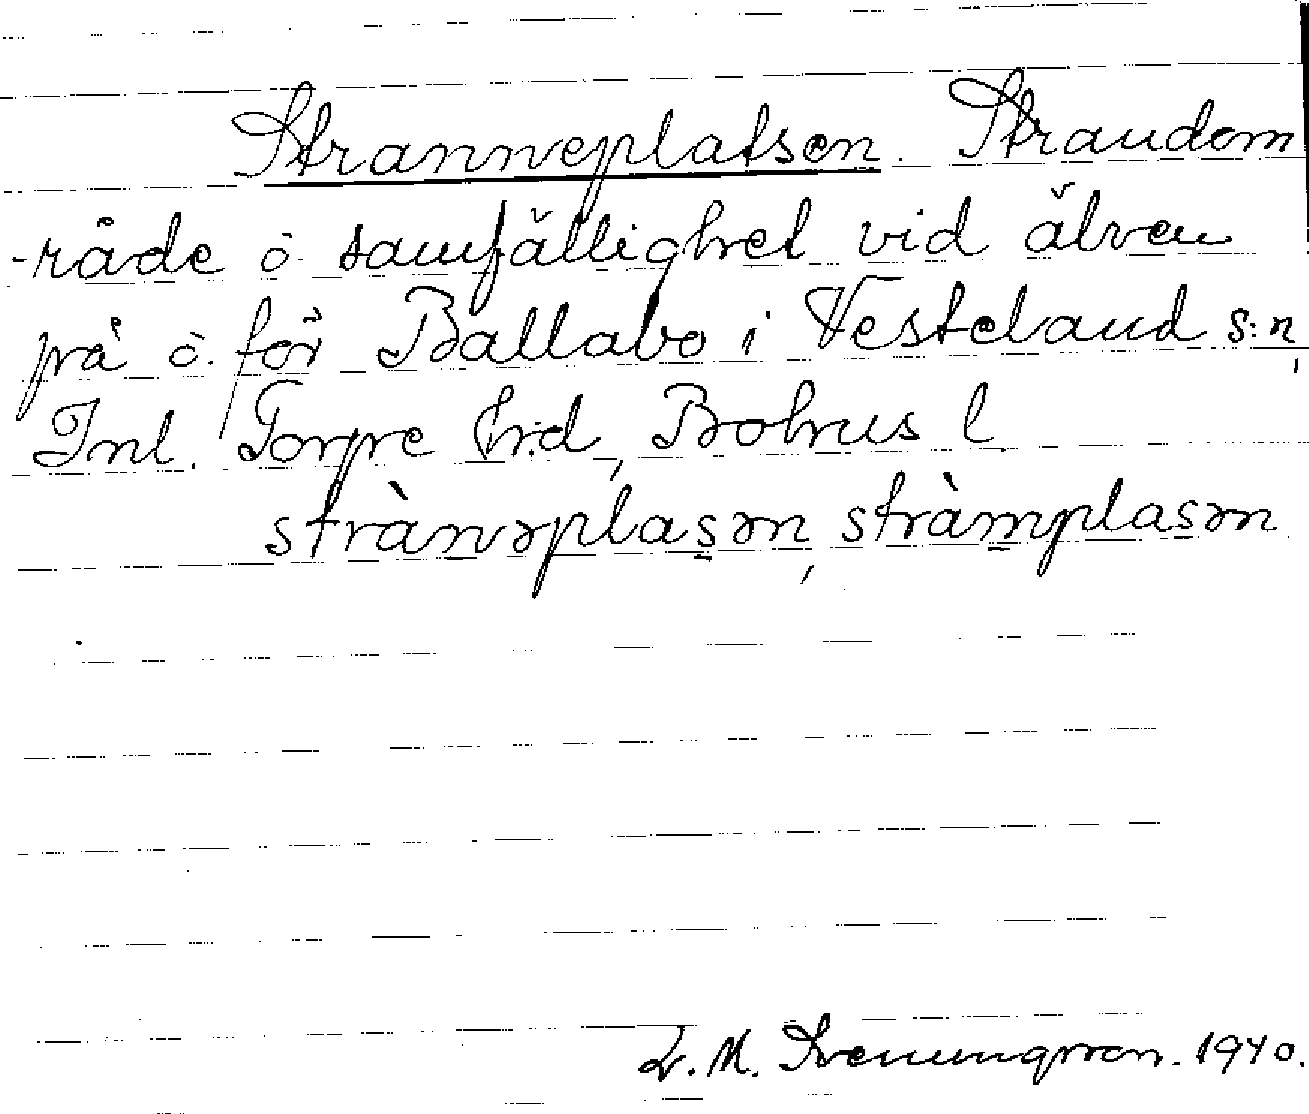 Stranneplatsen. Strandom
-råde o samfällighet vid älven
på ö. för Ballabo i Vesteland s:n,
Inl. Torpe hd, Bohus l
strànəplasən, stràmplasən
L. M. Svenungsson. 1940.